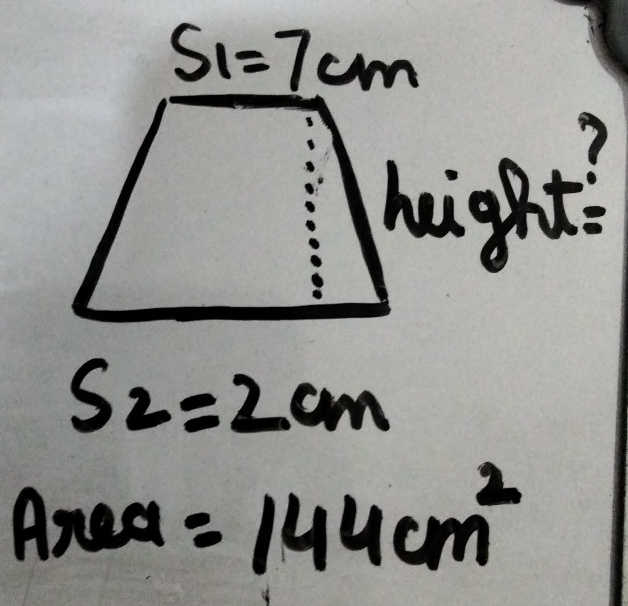 S1=7cm
height=?
S2=2cm
Area=144cm²